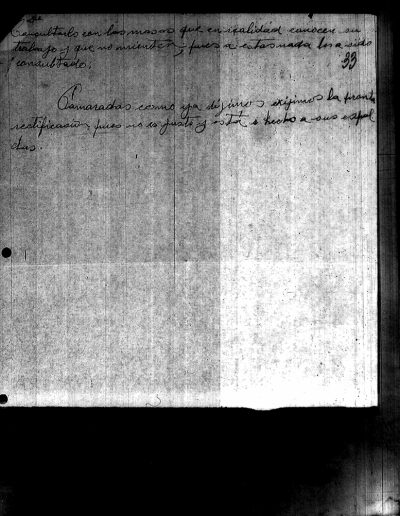 Consultarlo con las masas que en realidad conocen su
trabajo y que no mienten, pues a estas nada les a sido
consultado.
33
Camaradas como ya dijimos exijimos la pronta
rectificación, pues no es justo y esta hecho a sus espal
das.